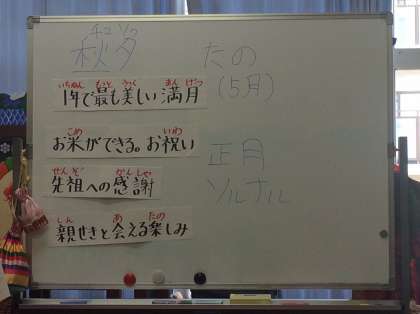 チュソク
秋夕
いちねん もっと うつく まんげつ
1年で最も美しい満月
こめ いわ
お米ができる。お祝い
せんぞ かんしゃ
先祖への感謝
しん あ たの
親せきと会える楽しみ
たの
(5月)
正月
ソルナル